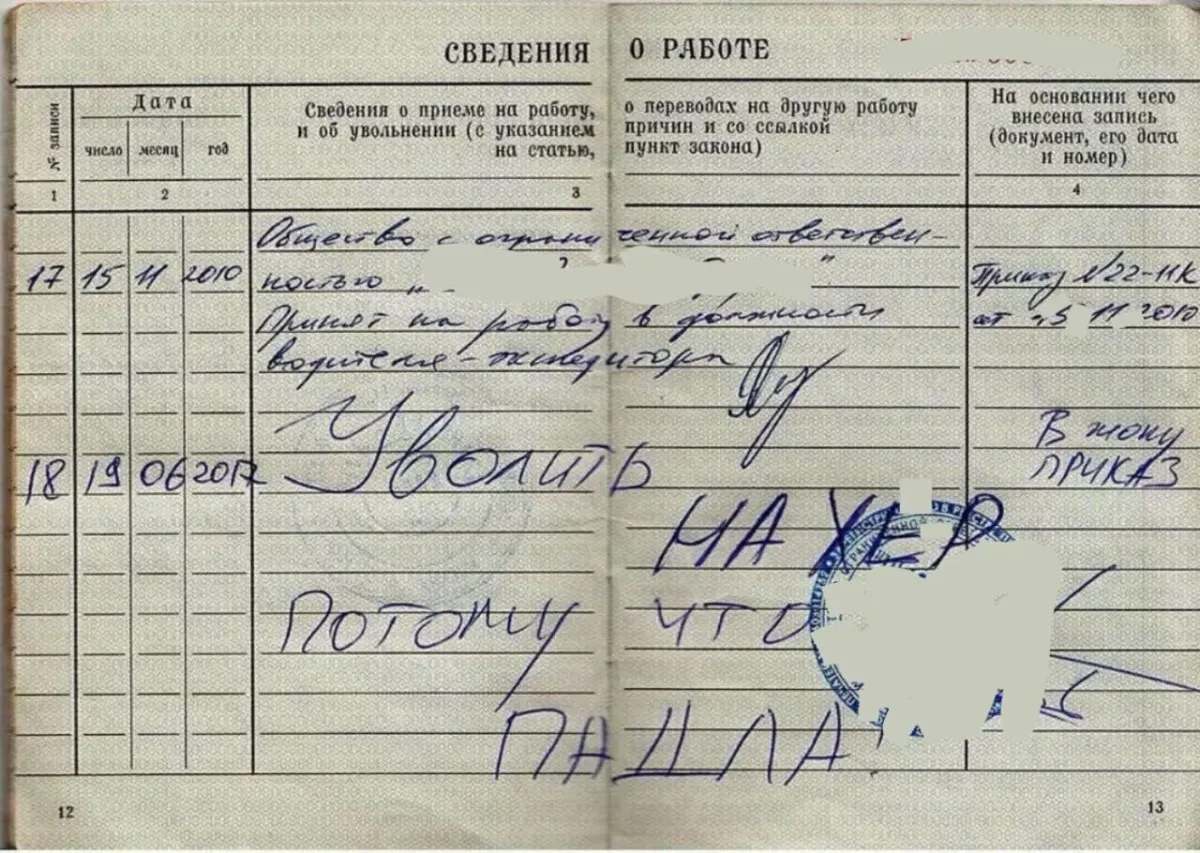 СВЕДЕНИЯ О РАБОТЕ
№ записи
Дата
число месяц год
Сведения о приеме на работу, о переводах на другую работу
и об увольнении (с указанием причин и со ссылкой
на статью, пункт закона)
На основании чего
внесена запись
(документ, его дата
и номер)
1 2 3 4
Общество с ограниченной ответствен-
17 15 11 2010 ностью „ “ Приказ №22-11К
Принят на работу в должности от 15 11 2010
водителя-экспедитора
В жопу
18 19 06 2017 Уволить ПРИКАЗ
НА ХЕР
ПОТОМУ ЧТО
ПАДЛА
12 13